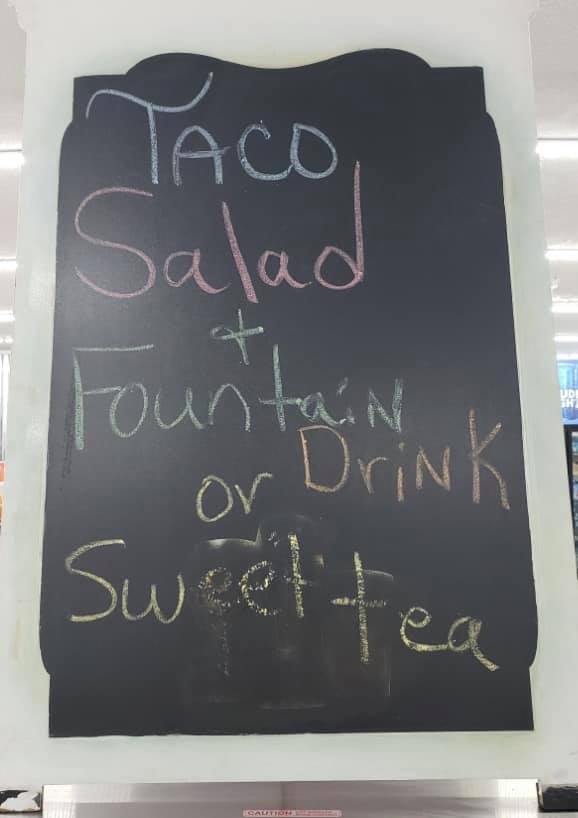 TACO
Salad
+
Fountain
Drink
or
Sweet tea
CAUTION